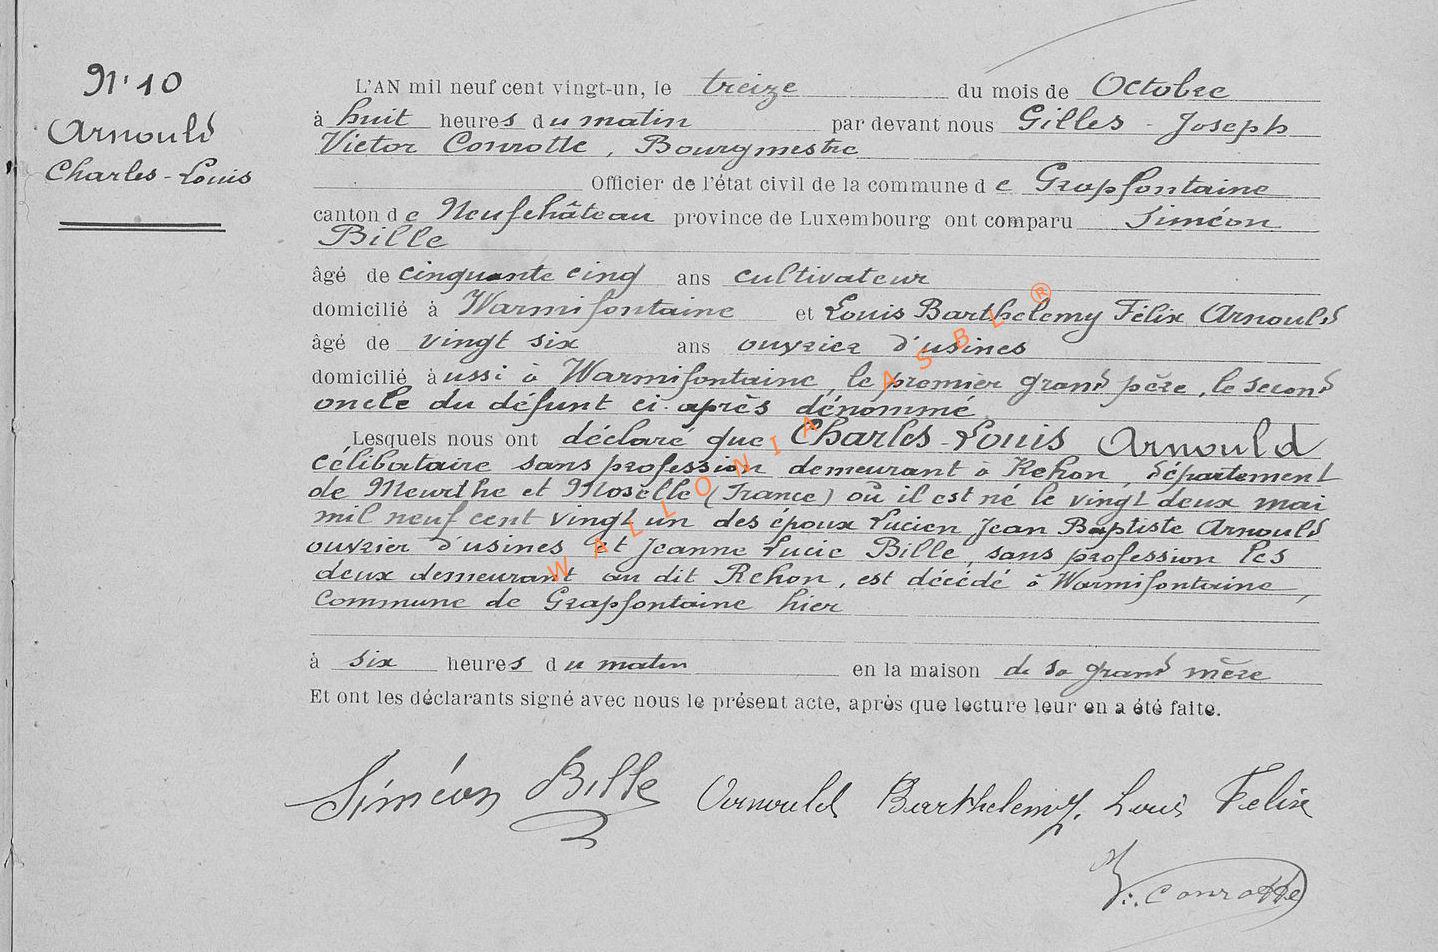 N° 10
Arnould
Charles-Louis
L'AN mil neuf cent vingt-un, le treize du mois de Octobre
à huit heures du matin par devant nous Gilles - Joseph
Victor Conrotte, Bourgmestre
Officier de l'état civil de la commune de Grapfontaine
canton de Neufchâteau province de Luxembourg ont comparu Siméon
Bille
âgé de cinquante cinq ans cultivateur
domicilié à Warmifontaine et Louis Barthelemy Félix Arnould
âgé de vingt six ans ouvrier d'usines
domicilié aussi à Warmifontaine, le premier grand père, le second
oncle du défunt ci-après dénommé
Lesquels nous ont déclaré que Charles-Louis Arnould
célibataire sans profession demeurant à Rehon, département
de Meurthe et Moselle (France) où il est né le vingt deux mai
mil neuf cent vingt un des époux Lucien Jean Baptiste Arnould
ouvrier d'usines et Jeanne Lucie Bille, sans profession les
deux demeurant au dit Rehon, est décédé à Warmifontaine,
commune de Grapfontaine hier
à six heures du matin en la maison de sa grand mère
Et ont les déclarants signé avec nous le présent acte, après que lecture leur en a été faite.
Siméon Bille Arnould Barthelemy. Louis Felix
V. Conrotte
WALLONIA ASBL ®